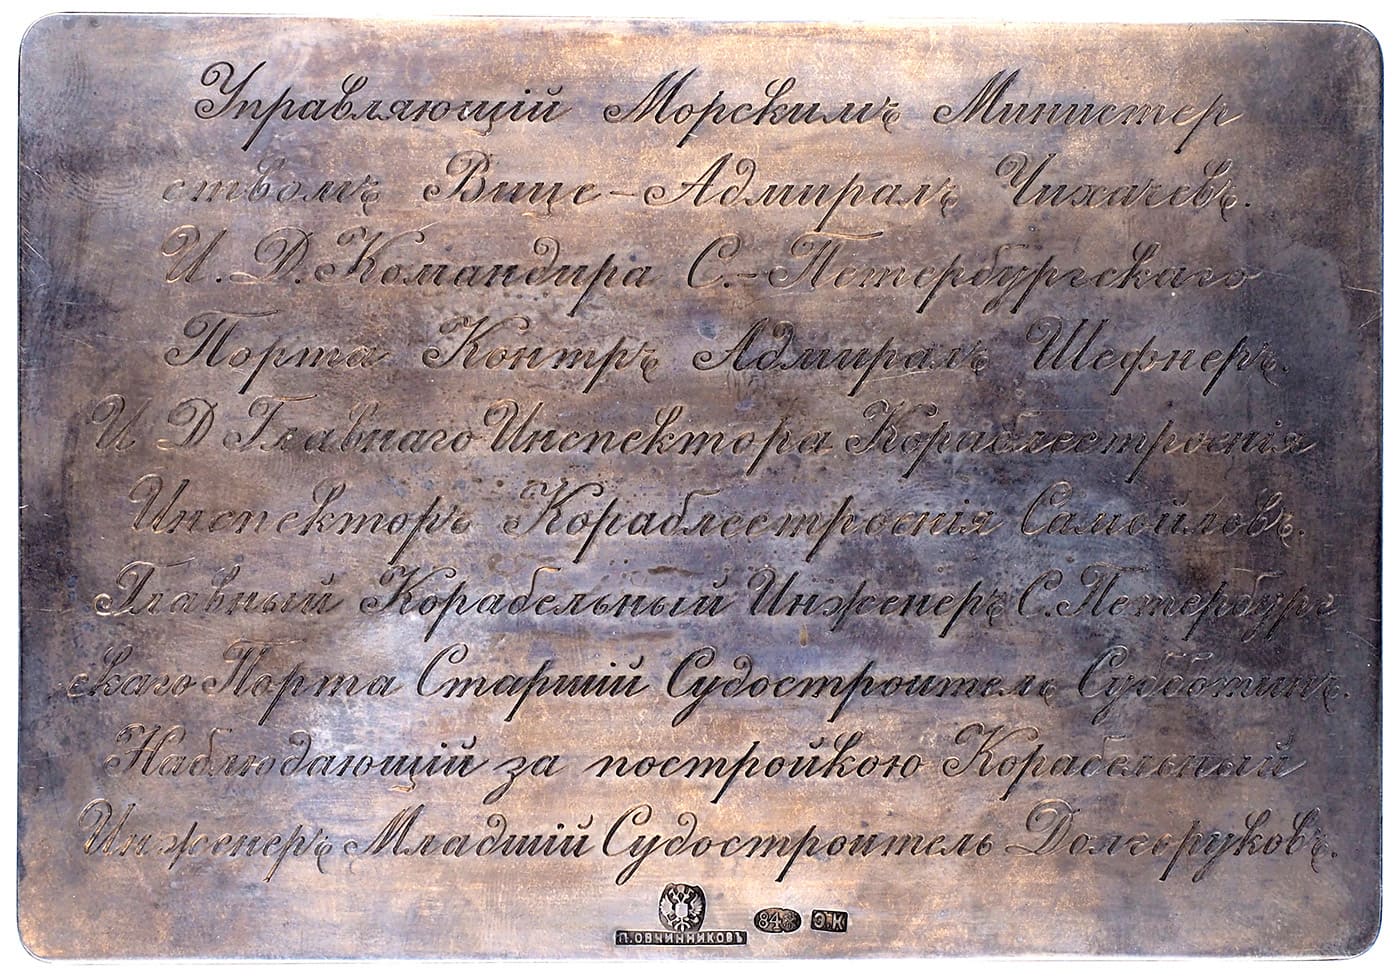 Управляющій Морскимъ Министер
ствомъ Вице-Адмиралъ Чихачевъ.
И. Д. Командира С.-Петербургскаго
Порта Контръ Адмиралъ Шефнеръ.
И Д Главнаго Инспектора Кораблестроенія
Инспекторъ Кораблестроенія Самойловъ.
Главный Корабельный Инженеръ С. Петербург
скаго Порта Старшій Судостроитель Субботинъ.
Наблюдающій за постройкою Корабельный
Инженеръ Младшій Судостроитель Долгоруковъ.
П.ОВЧИННИКОВЪ 84 Э.К